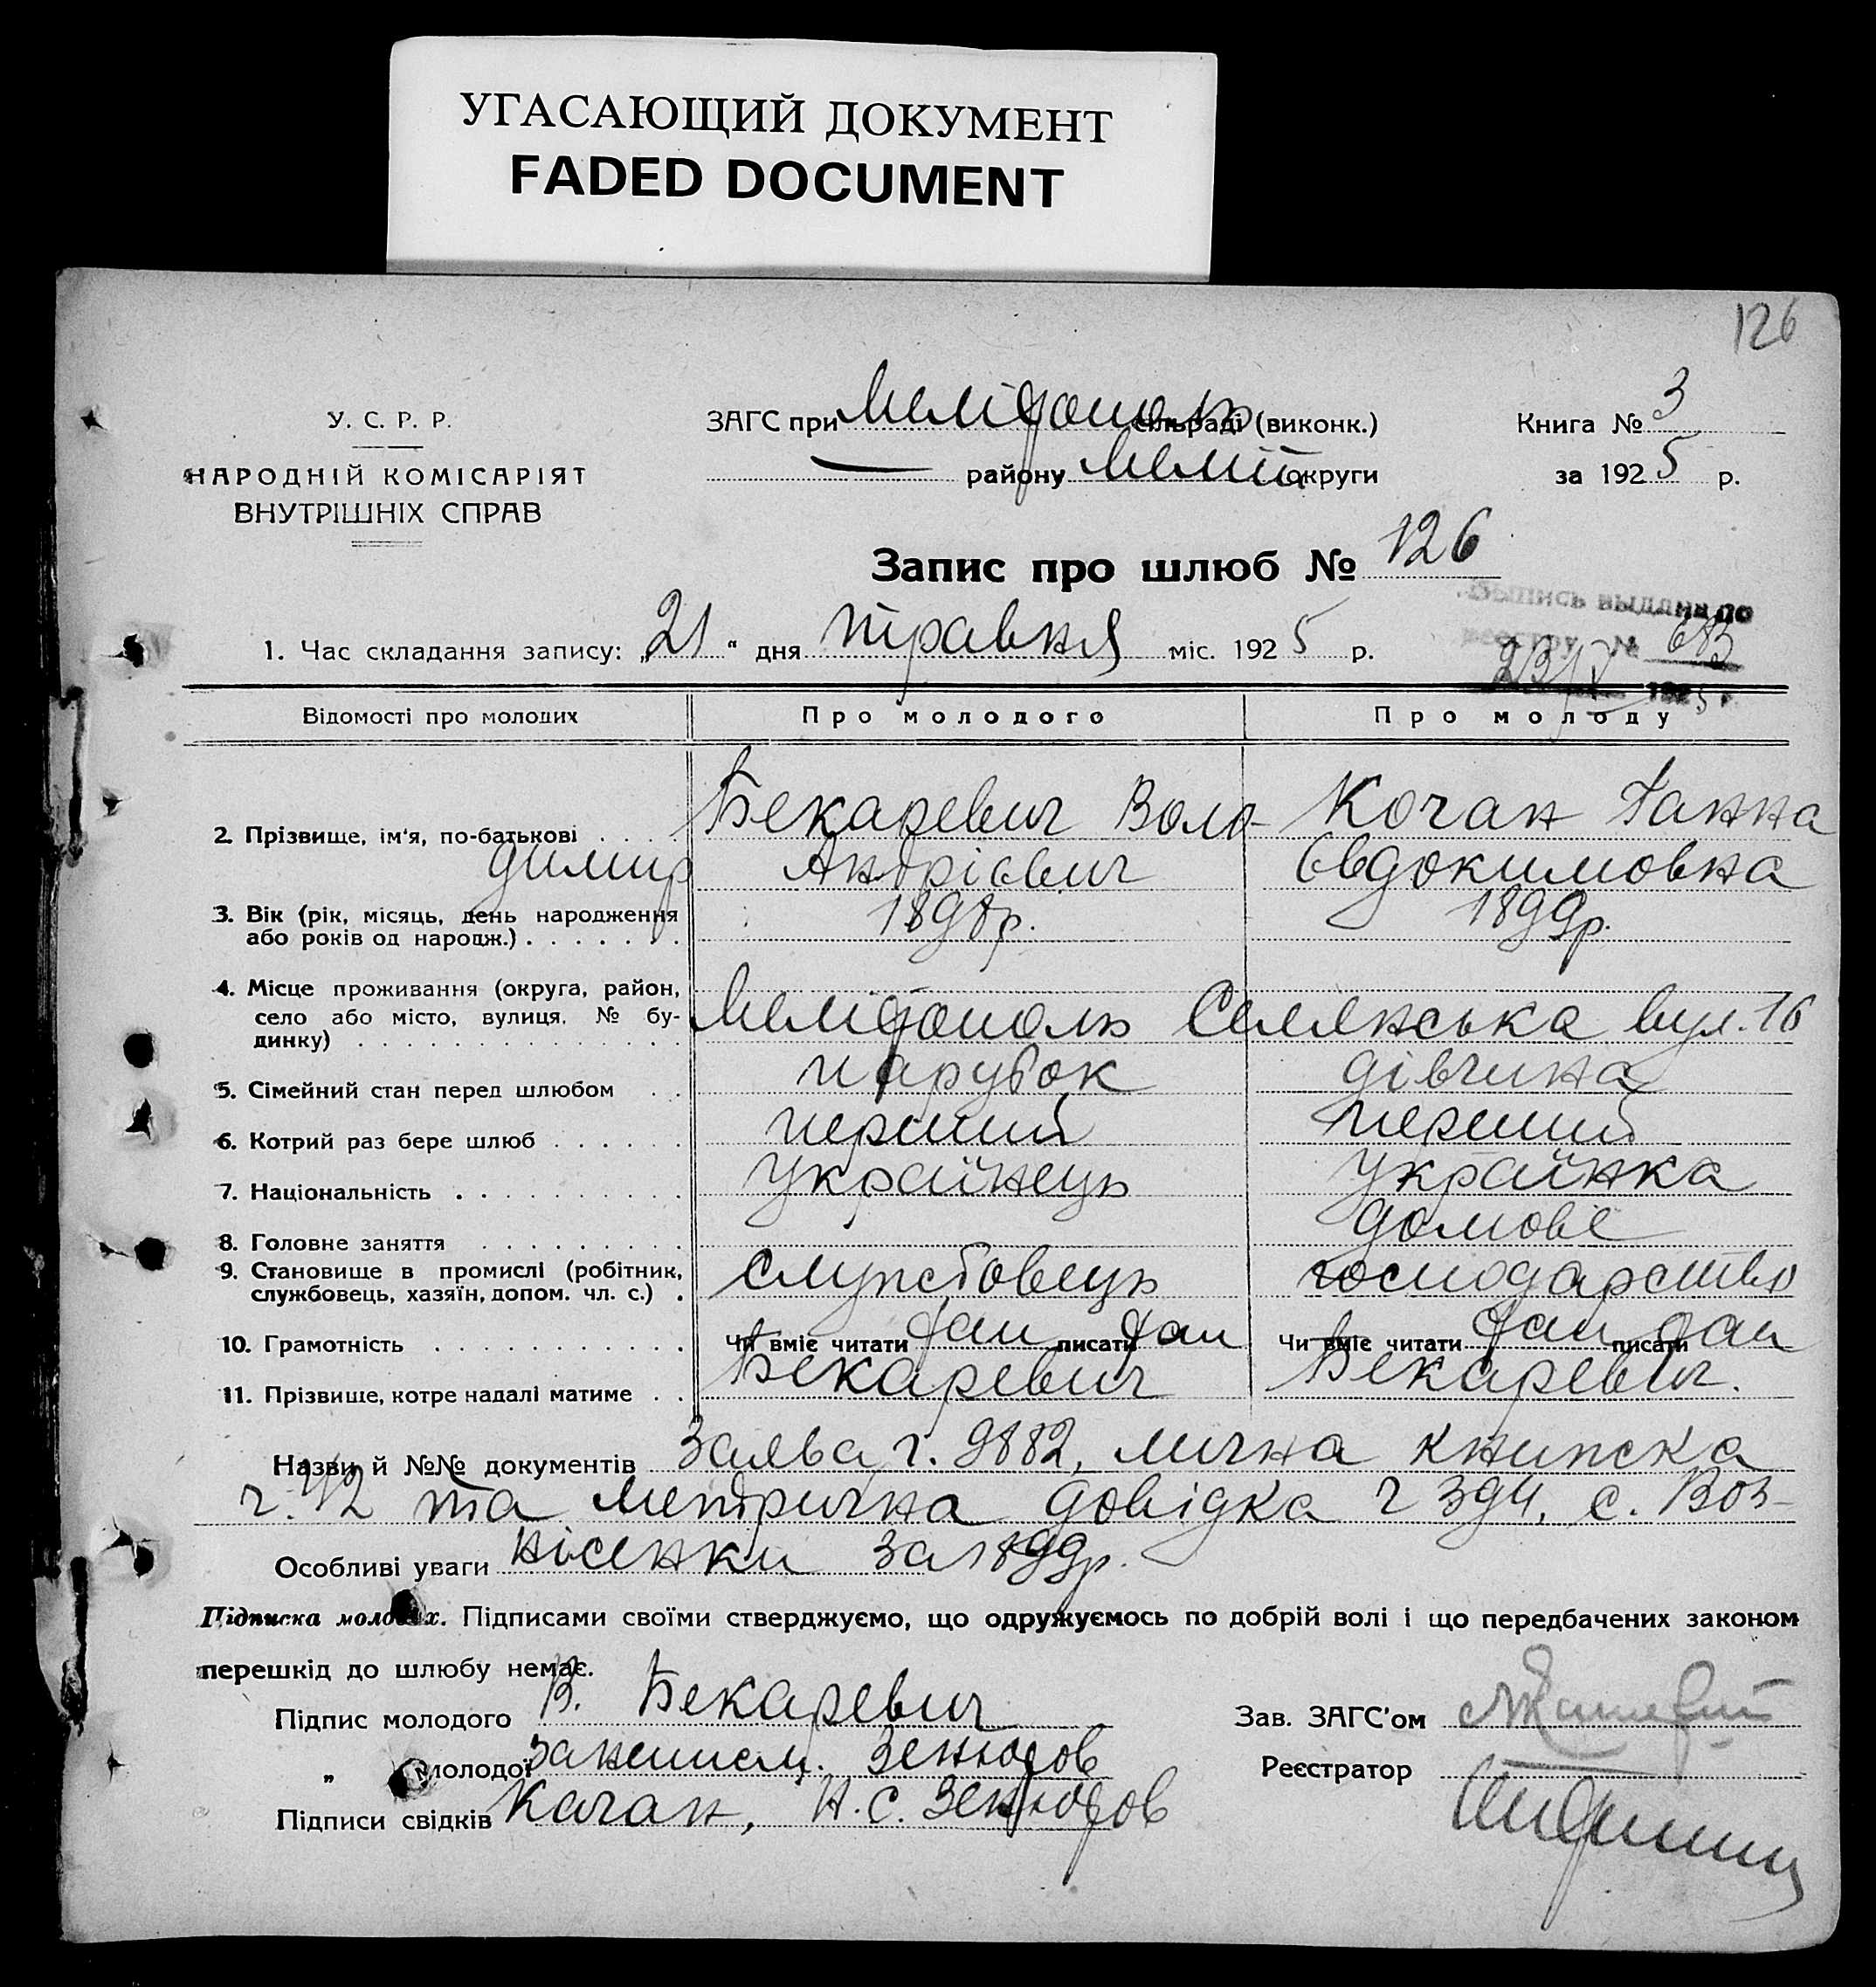 УГАСАЮЩИЙ ДОКУМЕНТ
FADED DOCUMENT
126
У. С. Р. Р.
НАРОДНІЙ КОМІСАРІЯТ
ВНУТРІШНІХ СПРАВ
ЗАГС при Мелітополь сільраді (виконк.)
— району Меліт округи
Книга № 3
за 1925 р.
Запис про шлюб № 126
Выпись выдана по
реестру №
23/V 1925 г.
1. Час складання запису: „21" дня травня міс. 1925 р.
Відомості про молодих Про молодого Про молоду
2. Прізвище, ім'я, по-батькові . . . . Бекаревич Воло- Кочан Ганна
димир Андрієвич Євдокимовна
3. Вік (рік, місяць, день народження 1898р. 1899р.
або років од народж.) . . . . . . .
4. Місце проживання (округа, район,
село або місто, вулиця, № бу- Мелітополь Селянська вул. 16
динку) . . . . . . . . . . . . . . .
5. Сімейний стан перед шлюбом . . парубок дівчина
6. Котрий раз бере шлюб . . . . . . перший перший
7. Національність . . . . . . . . . . українець українка
8. Головне заняття . . . . . . . . . домове
9. Становище в промислі (робітник, службовець господарство
службовець, хазяїн, допом. чл. с.) .
10. Грамотність . . . . . . . . . . . Чи вміє читати так писати так Чи вміє читати так писати так
11. Прізвище, котре надалі матиме . . Бекаревич Бекаревич.
Назви й №№ документів Заява ч. 9882, лична книжка
ч. 42 та метрична довідка ч 394, с. Воз-
Особливі уваги нісенки за 1899р.
Підписка молодих. Підписами своїми стверджуємо, що одружуємось по добрій волі і що передбачених законом
перешкід до шлюбу немає.
Підпис молодого В. Бекаревич
Зав. ЗАГС'ом
„ молодої
Реєстратор
Підписи свідків Качан,